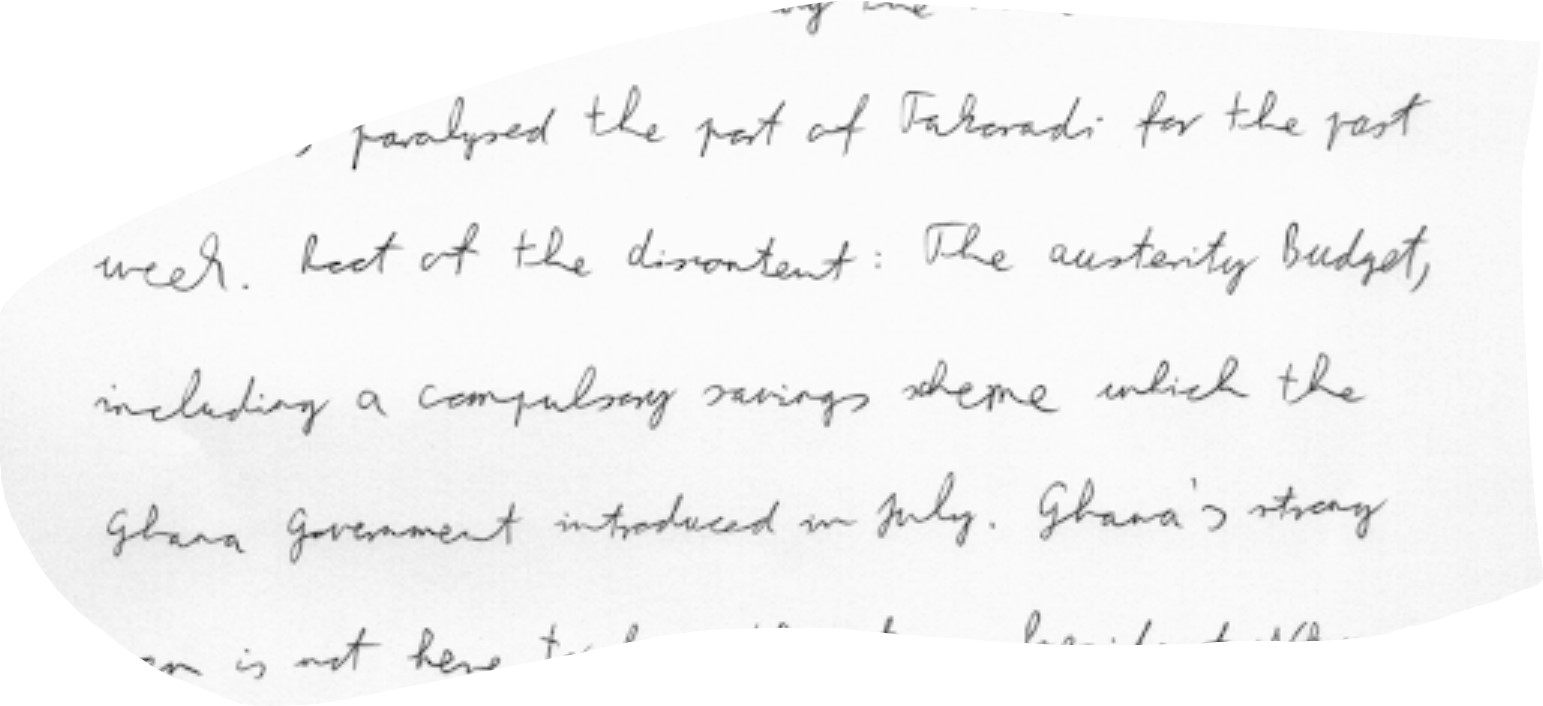 the
paralysed the port of Takoradi for the past
week. Root of the discontent: The austerity Budget,
including a compulsory savings scheme which the
Ghana Government introduced in July. Ghana's strong
is not here to